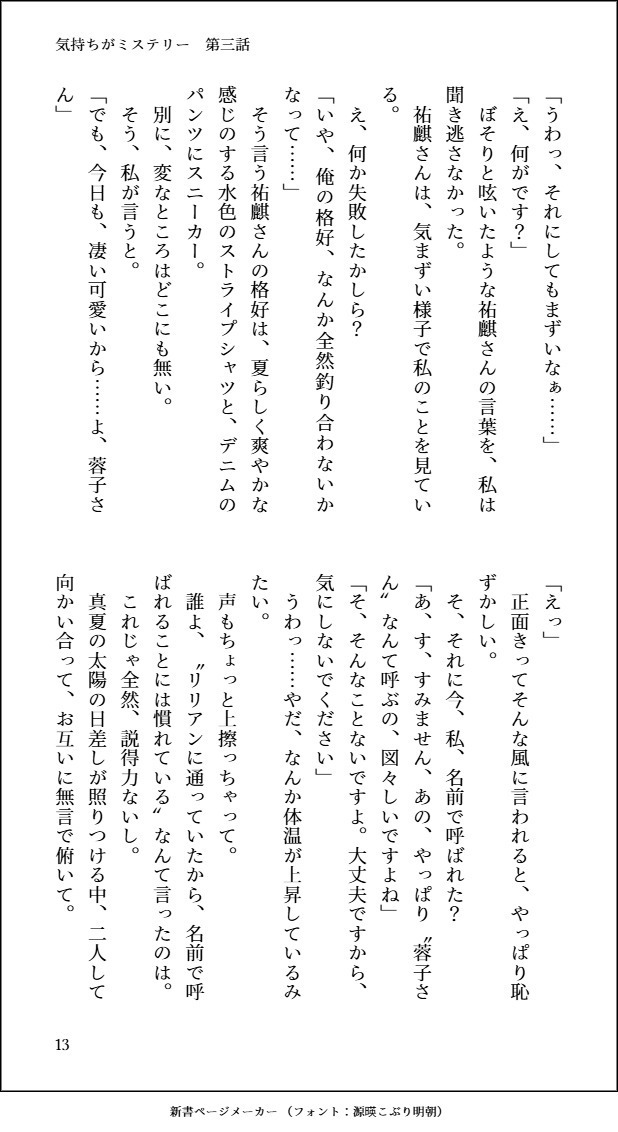 気持ちがミステリー　第三話
「うわっ、それにしてもまずいなぁ……」
「え、何がです？」
　ぼそりと呟いたような祐麒さんの言葉を、私は
聞き逃さなかった。
　祐麒さんは、気まずい様子で私のことを見てい
る。
　え、何か失敗したかしら？
「いや、俺の格好、なんか全然釣り合わないか
なって……」
　そう言う祐麒さんの格好は、夏らしく爽やかな
感じのする水色のストライプシャツと、デニムの
パンツにスニーカー。
　別に、変なところはどこにも無い。
　そう、私が言うと。
「でも、今日も、凄い可愛いから……よ、蓉子さ
ん」
「えっ」
　正面きってそんな風に言われると、やっぱり恥
ずかしい。
　そ、それに今、私、名前で呼ばれた？
「あ、す、すみません、あの、やっぱり〝蓉子さ
ん〟なんて呼ぶの、図々しいですよね」
「そ、そんなことないですよ。大丈夫ですから、
気にしないでください」
　うわっ……やだ、なんか体温が上昇しているみ
たい。
　声もちょっと上擦っちゃって。
　誰よ、〝リリアンに通っていたから、名前で呼
ばれることには慣れている〟なんて言ったのは。
　これじゃ全然、説得力ないし。
　真夏の太陽の日差しが照りつける中、二人して
向かい合って、お互いに無言で俯いて。
13
新書ページメーカー（フォント：源暎こぶり明朝）